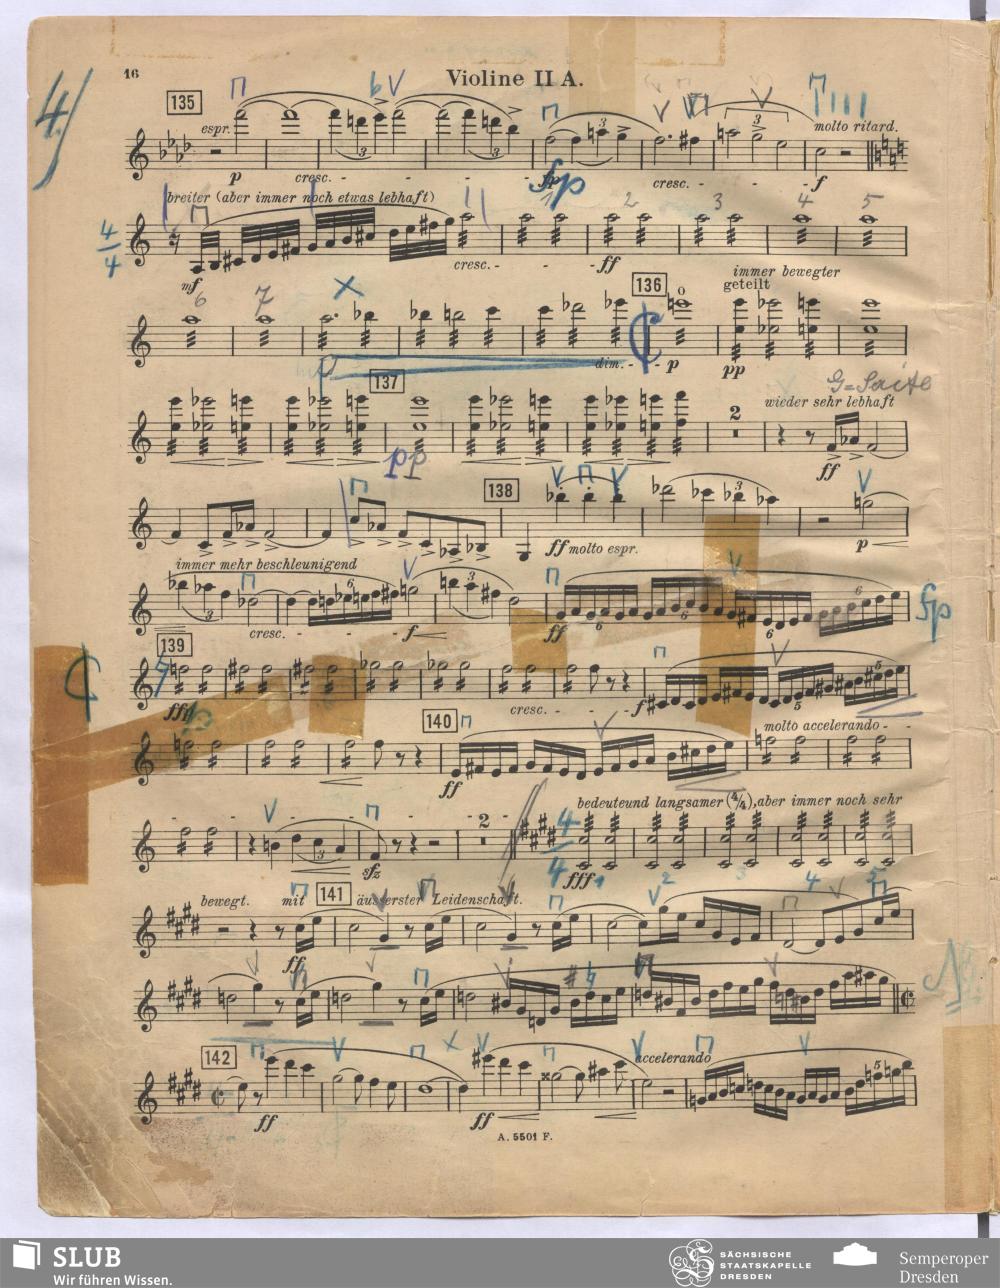 16 Violine II A.
4/
135 espr. molto ritard.
p cresc. - - - fp cresc. - - - f
fp
breiter (aber immer noch etwas lebhaft) 1 2 3 4 5
4/4
mf cresc. - - - ff
6 7 136 immer bewegter
geteilt
dim. - - p pp
137 G=Saite
2 wieder sehr lebhaft
pp ff
138
ff molto espr. p
immer mehr beschleunigend
3 6 3 6
cresc. - - - f ff 6 6 6
fp
139
fff cresc. - - - f 5 5
140 molto accelerando - -
ff
- - - - - 2 bedeuteund langsamer (4/4), aber immer noch sehr
4/4
3 sfz fff 1 2 3 4 5
bewegt. mit 141 äusserster Leidenschaft.
ff
142 accelerando
ff ff 5
A. 5501 F.
SLUB
Wir führen Wissen.
SÄCHSISCHE
STAATSKAPELLE
DRESDEN
Semperoper
Dresden